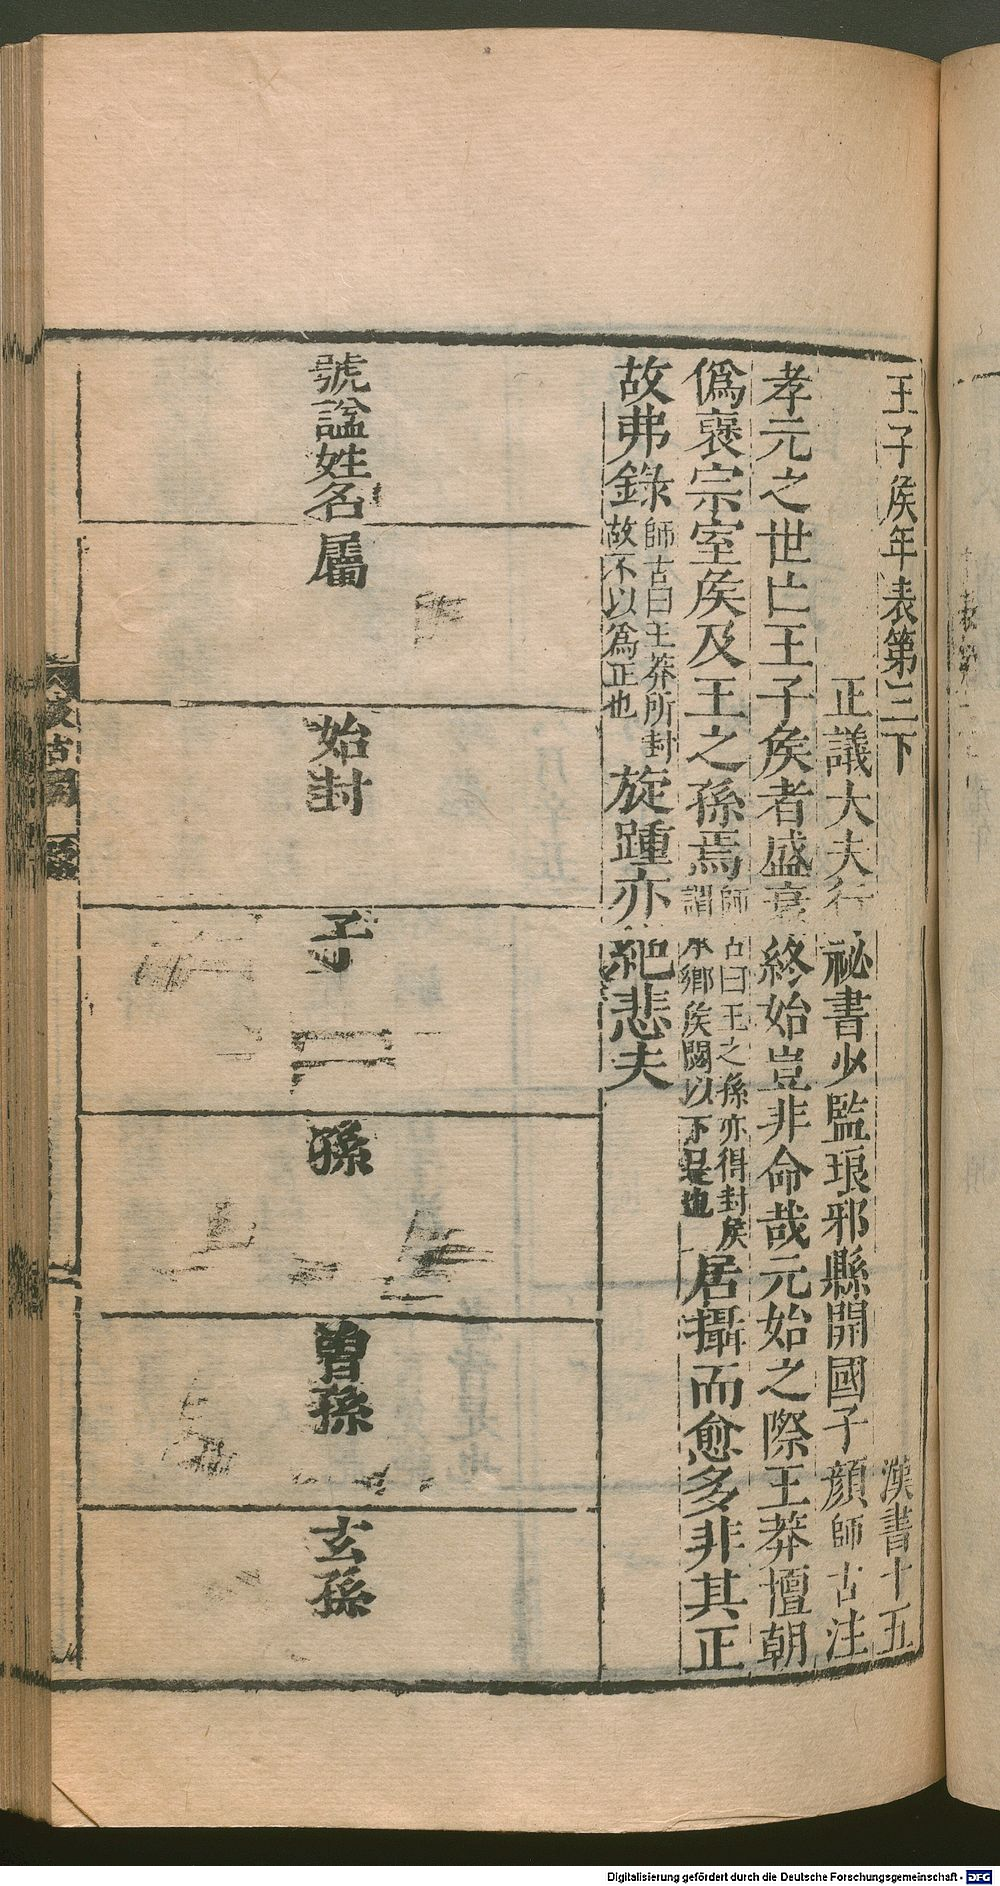 王子侯年表第三下 漢書十五
正議大夫行祕書少監琅邪縣開國子顔師古注
孝元之世亡王子侯者盛衰終始豈非命哉元始之際王莽擅朝
偽襃宗室侯及王之孫焉師古曰王之孫亦得封侯謂承鄉侯閎以下是也居攝而愈多非其正
故弗錄師古曰王莽所封故不以為正也旋踵亦絕悲夫
號諡姓名
屬
始封
子
孫
曾孫
玄孫
Digitalisierung gefördert durch die Deutsche Forschungsgemeinschaft - DFG